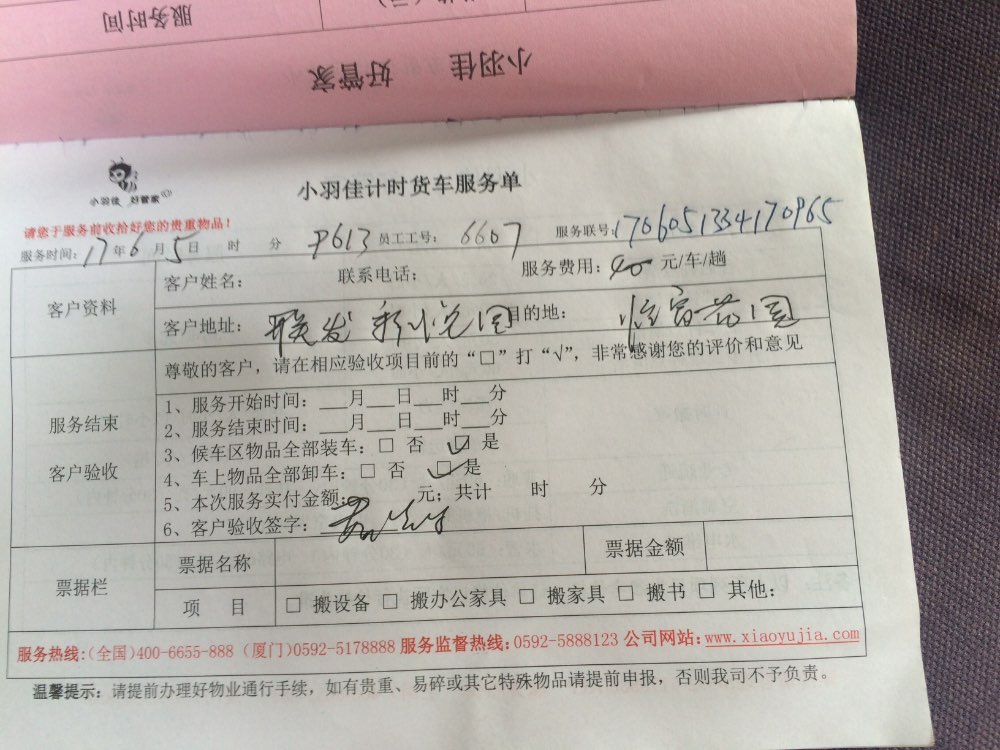 服务时间
小羽佳 好管家
小羽佳 好管家
小羽佳计时货车服务单
请您于服务前收拾好您的贵重物品！
服务时间：17年6月5日 时 分 P613 员工工号：6607 服务联号：1706051334170965
客户资料
客户姓名： 联系电话： 服务费用：40 元/车/趟
客户地址：联发 目的地：
尊敬的客户，请在相应验收项目前的“□”打“√”，非常感谢您的评价和意见
服务结束
客户验收
1、服务开始时间：___月___日___时___分
2、服务结束时间：___月___日___时___分
3、候车区物品全部装车：□ 否 ☑ 是
4、车上物品全部卸车：□ 否 ☑ 是
5、本次服务实付金额： 元；共计 时 分
6、客户验收签字：
票据栏
票据名称 票据金额
项 目 □ 搬设备 □ 搬办公家具 □ 搬家具 □ 搬书 □ 其他：
服务热线:(全国)400-6655-888 (厦门)0592-5178888 服务监督热线:0592-5888123 公司网站:www.xiaoyujia.com
温馨提示：请提前办理好物业通行手续，如有贵重、易碎或其它特殊物品请提前申报，否则我司不予负责。